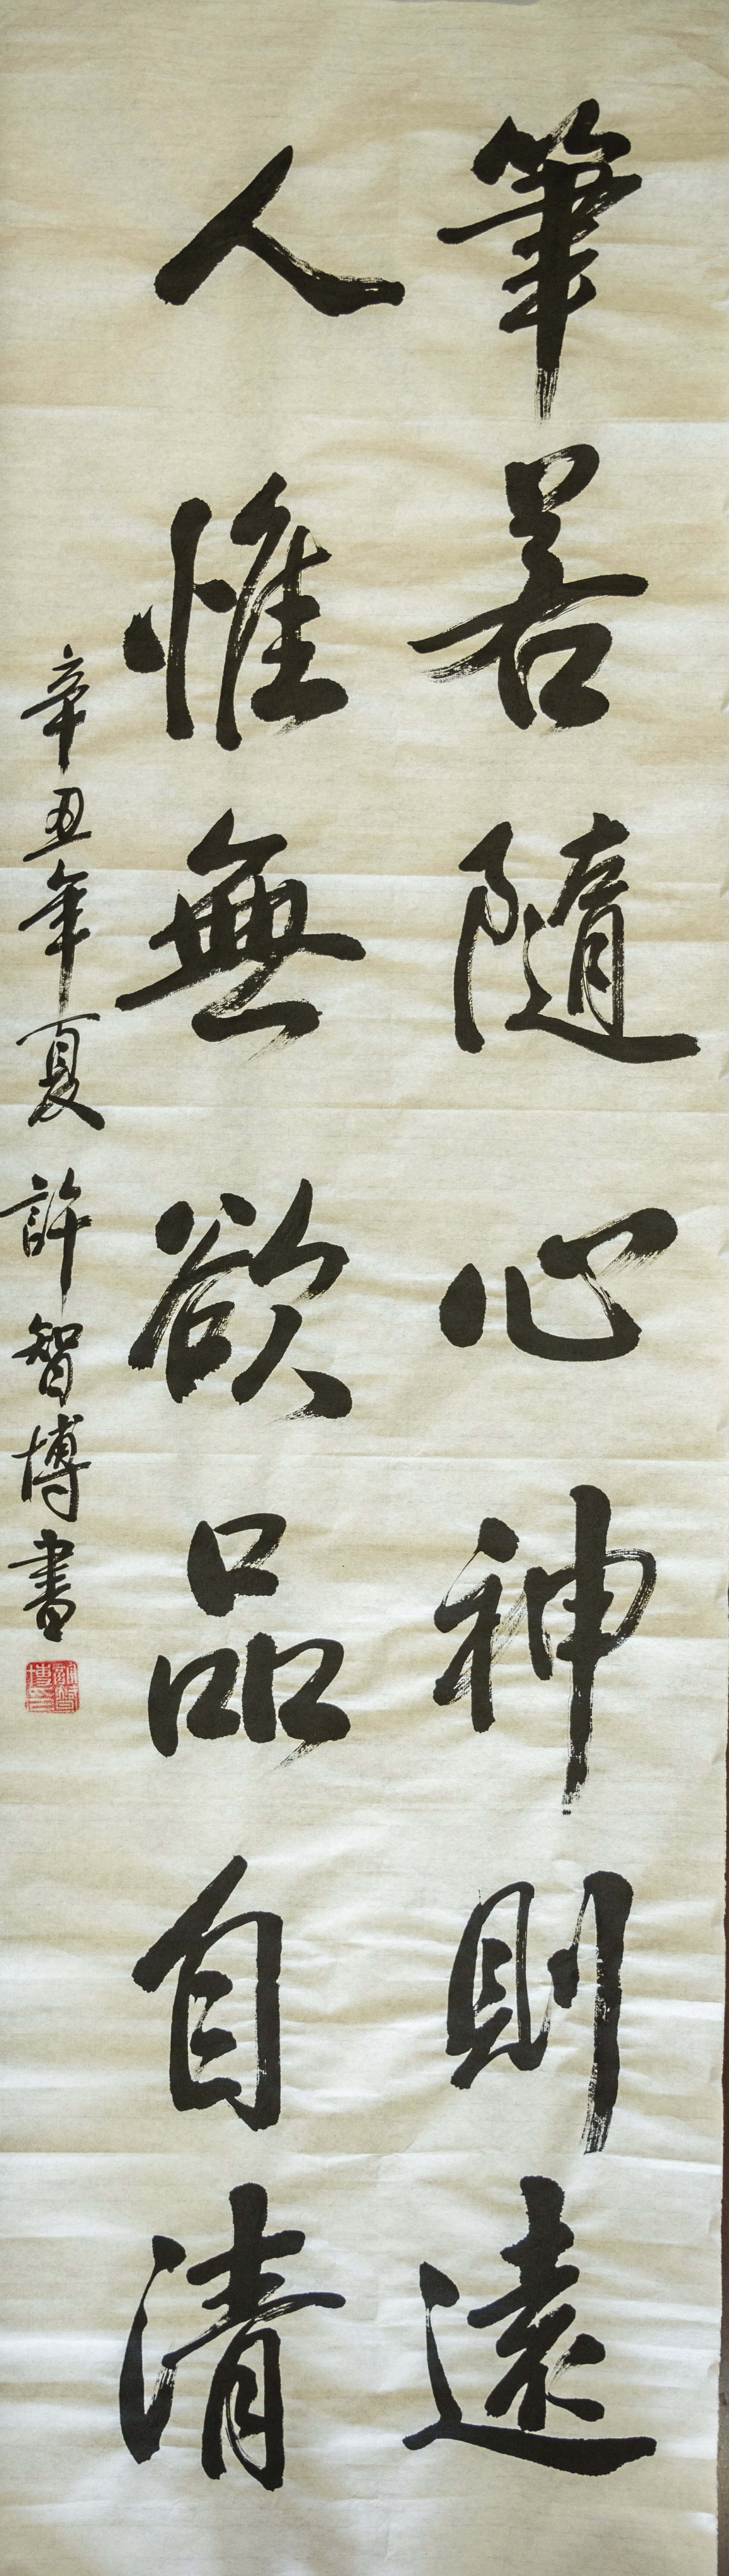 筆若隨心神則遠
人惟無欲品自清
辛丑年夏許智博書
許智博印